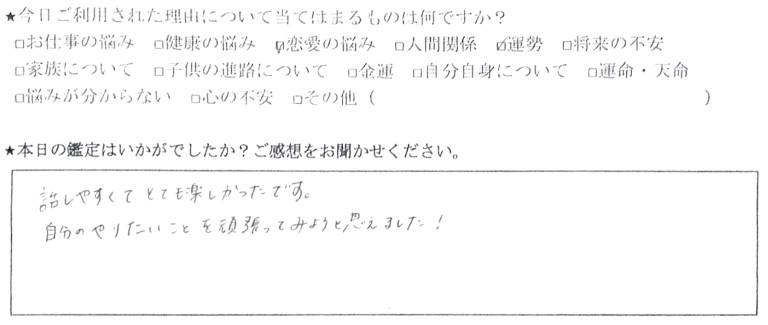 ★今日ご利用された理由について当てはまるものは何ですか？
□お仕事の悩み □健康の悩み ☑恋愛の悩み □人間関係 ☑運勢 □将来の不安
□家族について □子供の進路について □金運 □自分自身について □運命・天命
□悩みが分からない □心の不安 □その他（ ）
★本日の鑑定はいかがでしたか？ご感想をお聞かせください。
話しやすくてとても楽しかったです。
自分のやりたいことを頑張ってみようと思えました！